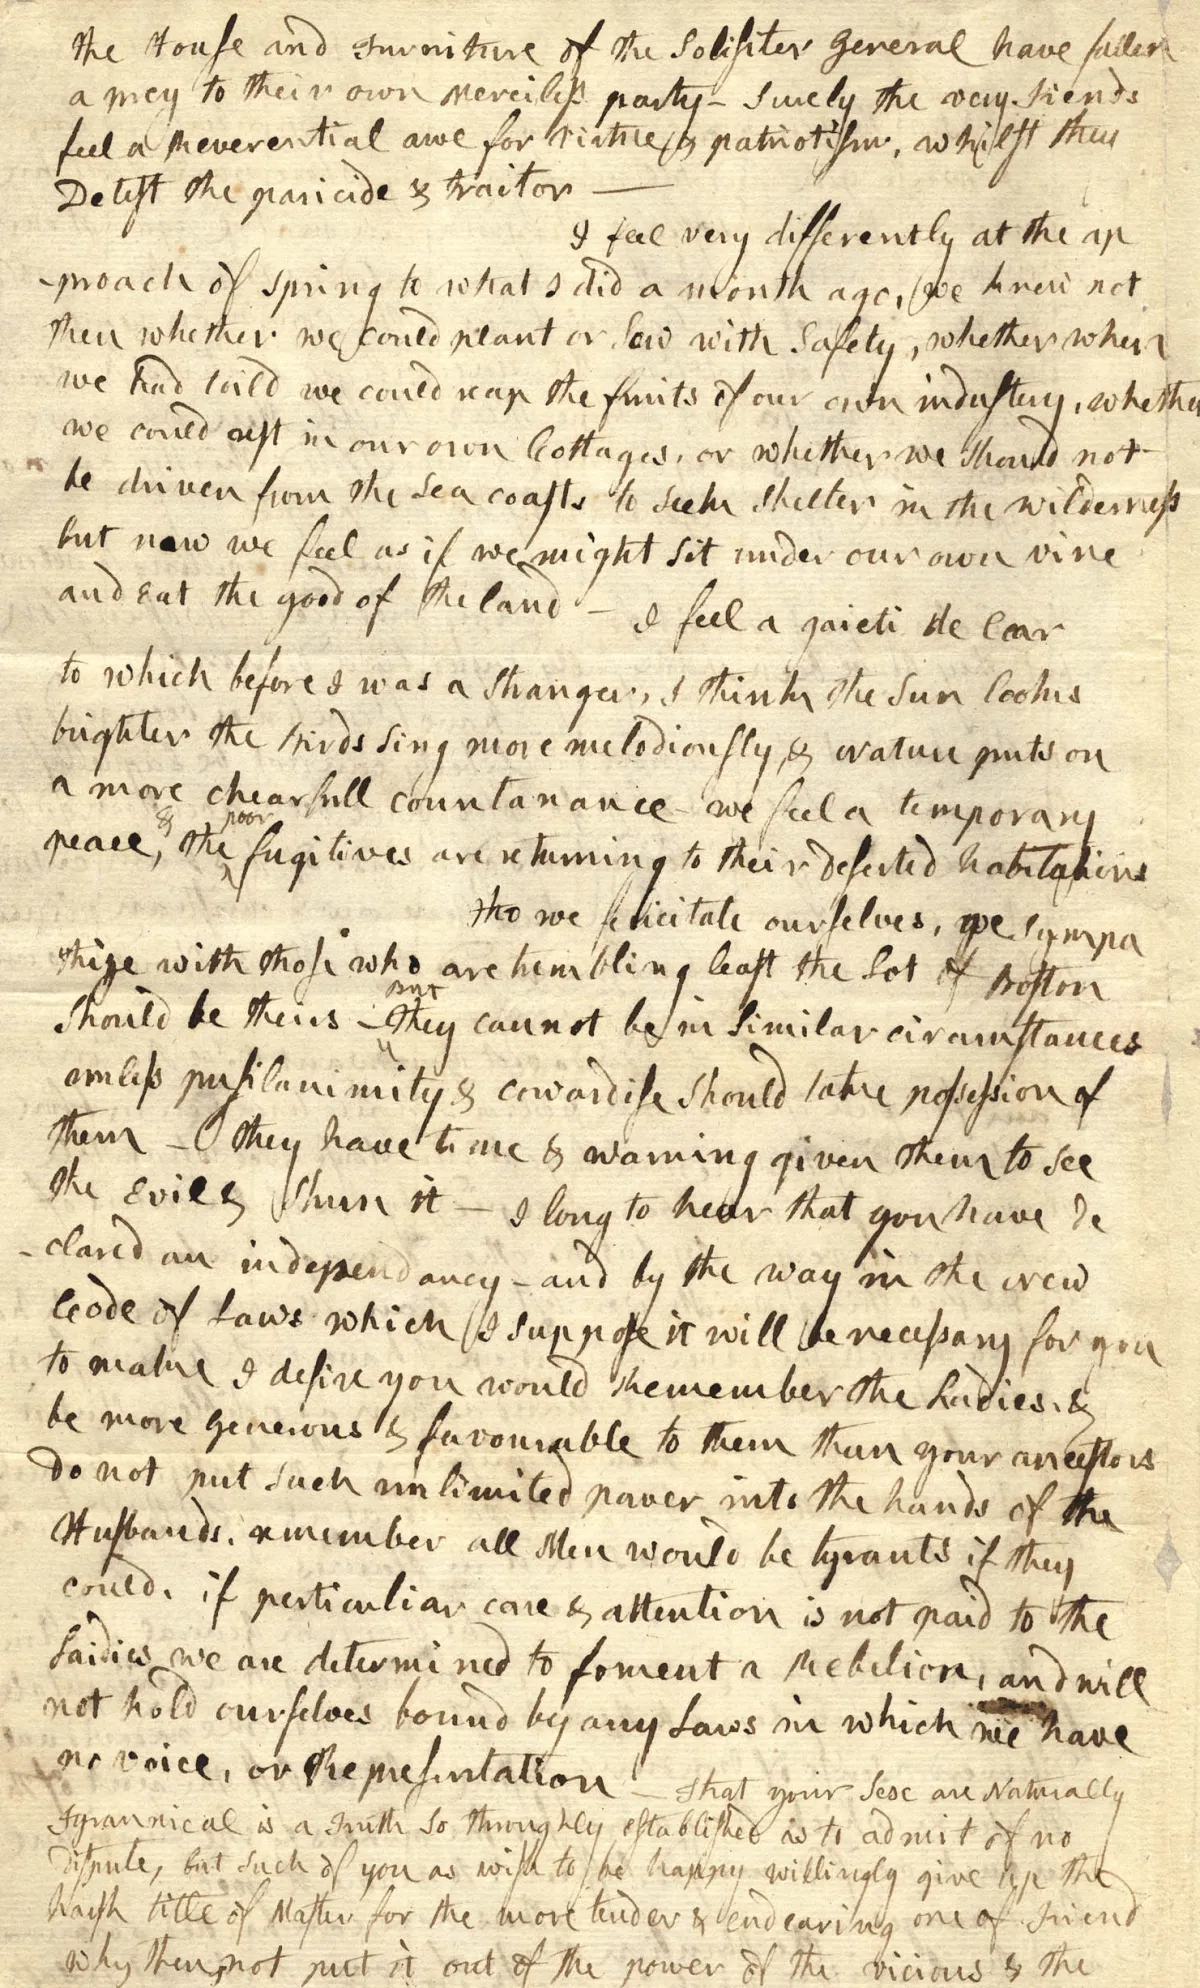 the House and Furniture of the Solisiter General have fallen
a prey to their own merciless party – Surely the very Fiends
feel a Reverential awe for Virtue & patriotism, whilst they
Detest the paricide & traitor —
I feel very differently at the ap
-proach of spring to what I did a month ago, we knew not
then whether we could plant or sow with safety, whether when
we had toild we could reap the fruits of our own industery, whether
we could rest in our own Cottages, or whether we should not
be driven from the sea coasts to seek shelter in the wilderness
but now we feel as if we might sit under our own vine
and eat the good of the land – I feel a gaieti de Coar
to which before I was a stranger, I think the Sun looks
brighter the Birds sing more melodiously, & Nature puts on
a more chearfull countanance – we feel a temporary
peace, & the poor fugitives are returning to their deserted habitations
tho we felicitate ourselves, we sympa
thize with those who are trembling least the Lot of Boston
should be theirs – But they cannot be in similar circumstances
unless pusilanimity & cowardise should take possession of
them – they have time & warning given them to see
the Evil & shun it – I long to hear that you have de
-clared an independancy – and by the way in the new
Code of Laws which I suppose it will be necessary for you
to make I desire you would Remember the Ladies, &
be more generous & favourable to them than your ancestors
Do not put such unlimited power into the hands of the
Husbands. remember all Men would be tyrants if they
could. if perticuliar care & attention is not paid to the
Laidies we are determined to foment a Rebelion, and will
not hold ourselves bound by any Laws in which we have
no voice, or Representation – That your Sex are Naturally
Tyrannical is a Truth so throughly established as to admit of no
dispute, but such of you as wish to be happy willingly give up the
harsh title of Master for the more tender & endearing one of Friend
why then, not put it out of the power of the vicious & the